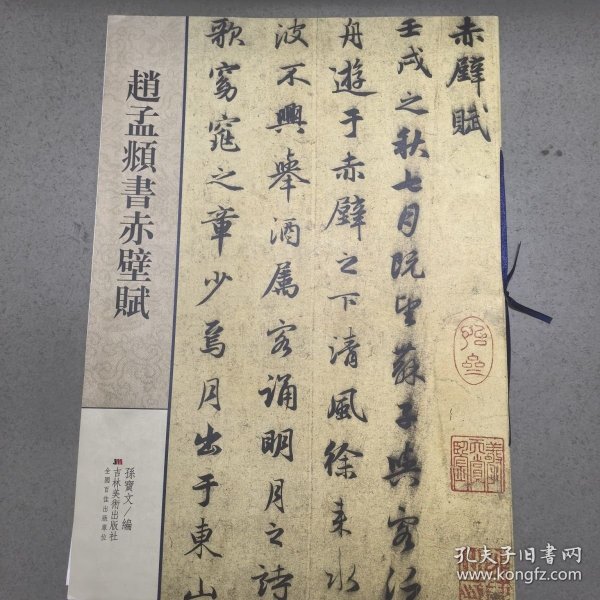 赤壁賦
壬戌之秋七月既望蘇子與客泛
舟遊于赤壁之下清風徐来水
波不興舉酒属客誦明月之詩
歌窈窕之章少焉月出于東山
趙孟頫書赤壁賦
孫寶文/編
吉林美術出版社
全國百佳出版單位
孔夫子旧书网
www.kongfz.com